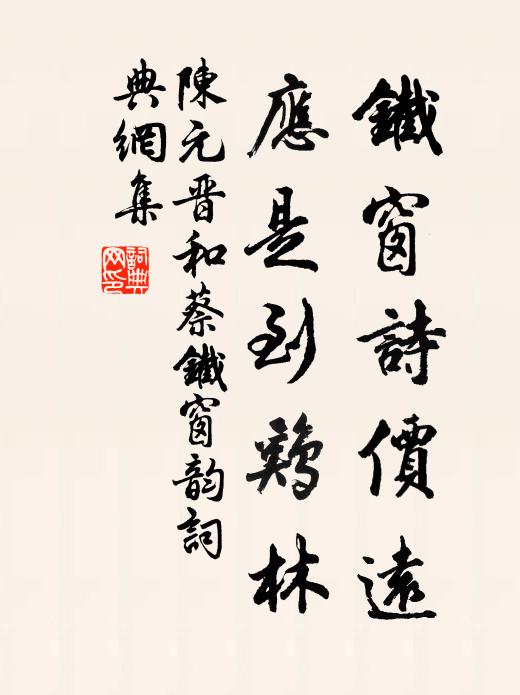 鐵窗詩價遠
應是到鷄林
陳元晋和蔡鐵窗韵詞
典網集
詞典
网印